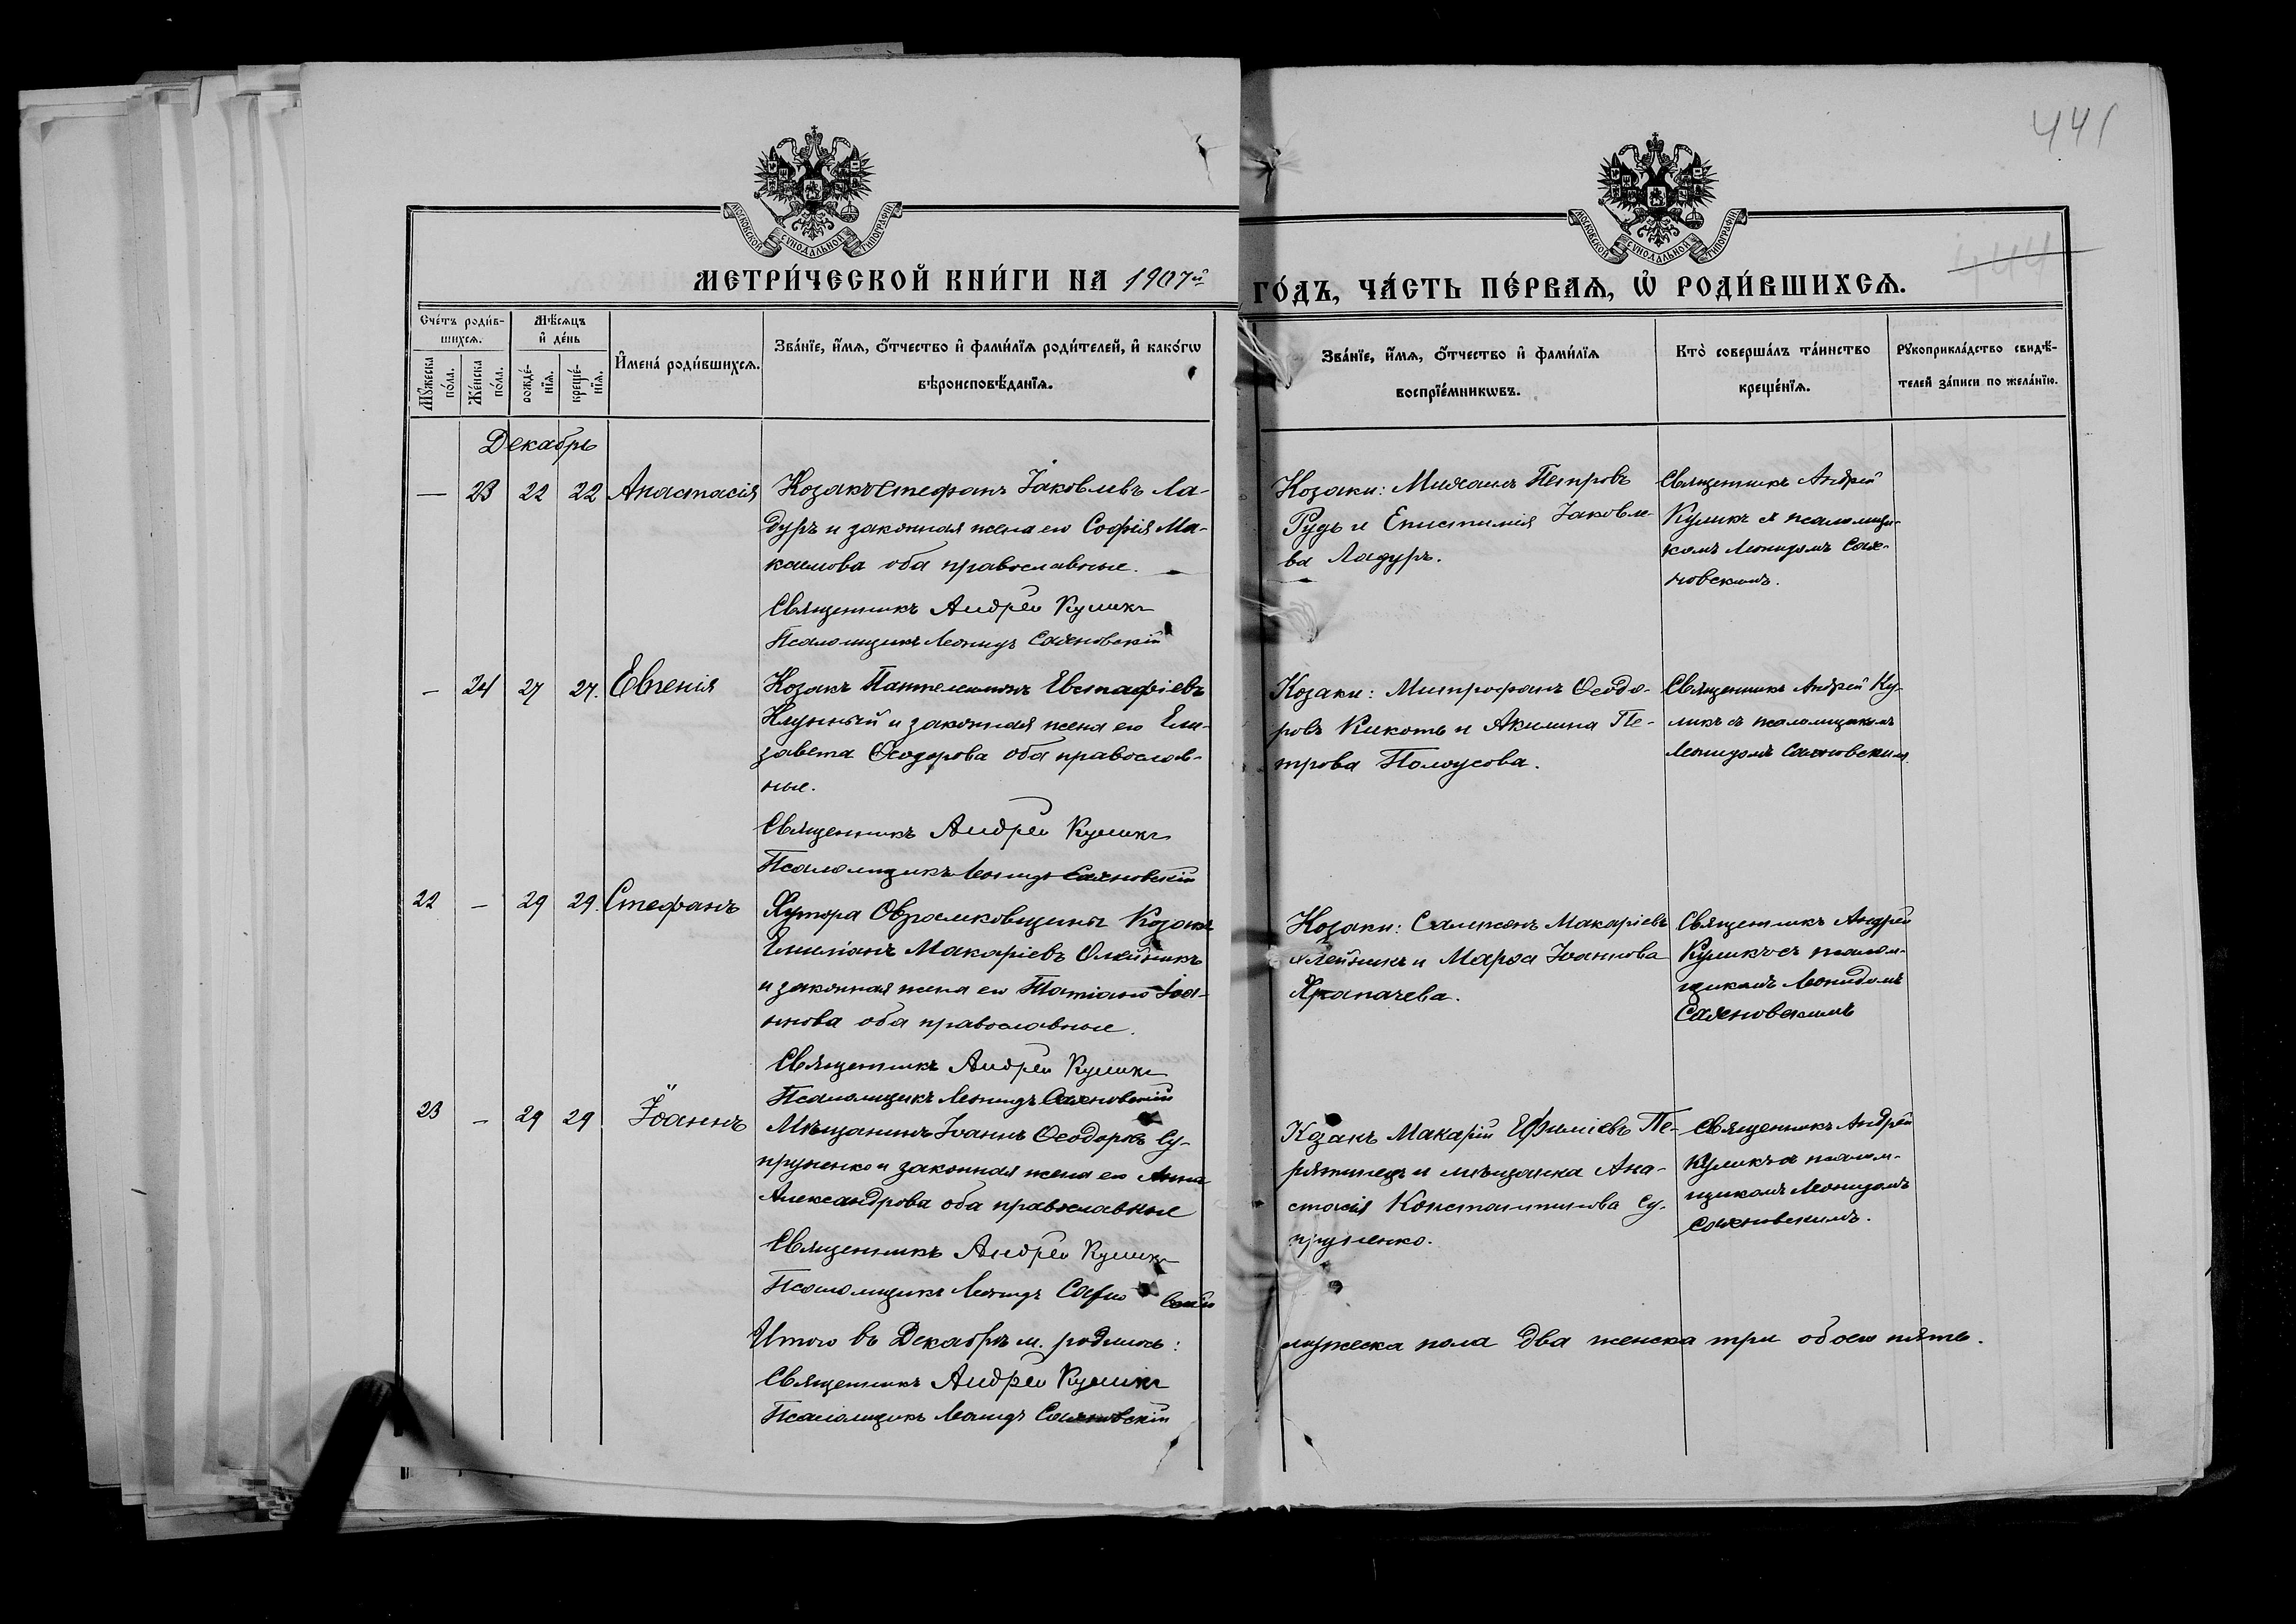 441
МОСКОВСКОЙ СѴНОДАЛЬНОЙ ТИПОГРАФІИ
МОСКОВСКОЙ СѴНОДАЛЬНОЙ ТИПОГРАФІИ
МЕТРИ́ЧЕСКОЙ КНИ́ГИ НА 1907й
ГО́ДЪ, ЧА́СТЬ ПЕ́РВАѦ, Ѡ҆ РОДИ́ВШИХСѦ.
444
Сче́тъ роди́в-
шихсѧ.
Мꙋ́жеска
по́ла.
Же́нска
по́ла.
Мѣ́сѧцъ
и҆ де́нь
рожде́-
нїѧ.
креще́-
нїѧ.
И҆мена̀ роди́вшихсѧ.
Зва́нїе, и҆́мѧ, ѻ҆́тчество и҆ фами́лїѧ роди́телей, и҆ како́гѡ
вѣроисповѣ́данїѧ.
Зва́нїе, и҆́мѧ, ѻ҆́тчество и҆ фами́лїѧ
воспрїе́мникѡвъ.
Кто̀ соверша́лъ та́инство
креще́нїѧ.
Рꙋкоприкла́дство свидѣ́-
телей за́писи по жела́нїю.
Декабрь
— 23 22 22 Анастасія
Козакъ Стефанъ Іаковлевъ Ла-
дуръ и законная жена его Софія Ма-
каимова оба православные.
Священникъ Андрей Куликъ
Псаломщикъ Леонидъ Сахновскій
Козаки: Михаилъ Петровъ
Рудь и Епистимія Іаковле-
ва Ладуръ.
Священникъ Андрей
Куликъ съ псаломщи-
комъ Леонидомъ Сах-
новскимъ.
— 24 27 27. Евгенія
Козакъ Пантелеимонъ Евстафіевъ
Клунный и законная жена его Ели-
завета Ѳеодорова оба православ-
ные.
Священникъ Андрей Куликъ
Псаломщикъ Леонидъ Сахновскій
Козаки: Митрофанъ Ѳеодо-
ровъ Кикоть и Акилина Пе-
трова Полоусова.
Священникъ Андрей Ку-
ликъ съ псаломщикомъ
Леонидомъ Сахновскимъ
22 — 29 29. Стефанъ
Хутора Козакъ
Емиліанъ Макаріевъ Олейникъ
и законная жена его Татіана Іоа-
ннова оба православные.
Священникъ Андрей Куликъ
Псаломщикъ Леонидъ Сахновскій
Козаки: Сампсонъ Макаріевъ
Олейникъ и Марѳа Іоаннова
Храпачева.
Священникъ Андрей
Куликъ съ псалом-
щикомъ Леонидомъ
Сахновскимъ
23 — 29 29 Іоаннъ
Мѣщанинъ Іоаннъ Ѳеодоровъ Су-
пруненко и законная жена его Анна
Александрова оба православные
Священникъ Андрей Куликъ
Псаломщикъ Леонидъ
Козакъ Макарій Ефиміевъ Пе-
рятинецъ и мѣщанка Ана-
стасія Константинова Су-
пруненко.
Священникъ Андрей
Куликъ съ псалом-
щикомъ Леонидомъ
Сахновскимъ.
Итого въ Декабрѣ м. родилось:
мужеска пола два женска три обоего пять.
Священникъ Андрей Куликъ
Псаломщикъ Леонидъ Сахновскій